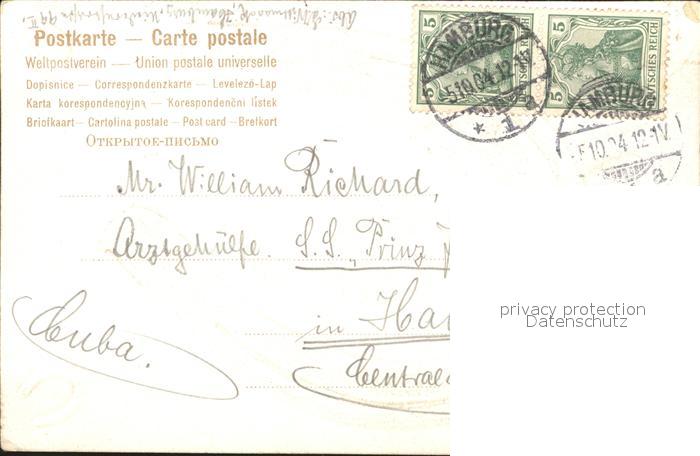 Postkarte — Carte postale
Weltpostverein — Union postale universelle
Dopisnice — Correspondenzkarte — Levelező-Lap
Karta korespondencyjna — Korespondenční lístek
Briefkaart — Cartolina postale — Post card — Brefkort
Открытое-письмо
5 5 DEUTSCHES REICH
HAMBURG
5.10.04.12-1V.
a
HAMBURG
5.10.04.12-1V.
a
Mr. William Richard,
Arztgehülfe. S.S. „Prinz
in Ha
Cuba.
Central
privacy protection
Datenschutz